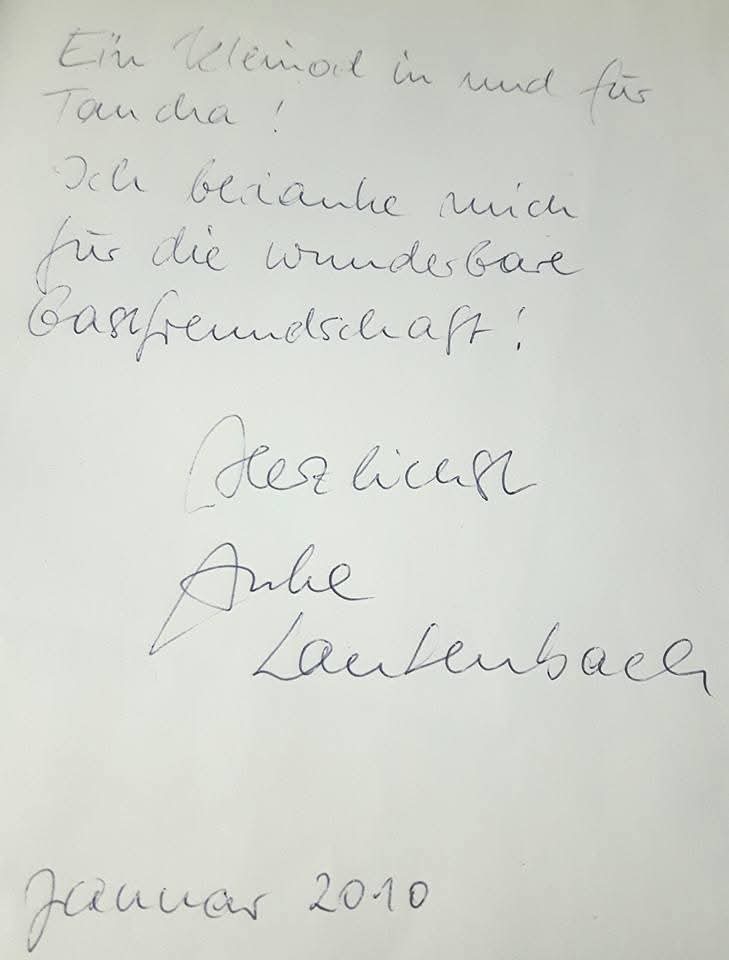 Ein Kleinod in und für
Taucha !
Ich bedanke mich
für die wunderbare
Gastfreundschaft !
Herzlichst
Anke
Lautenbach
Januar 2010